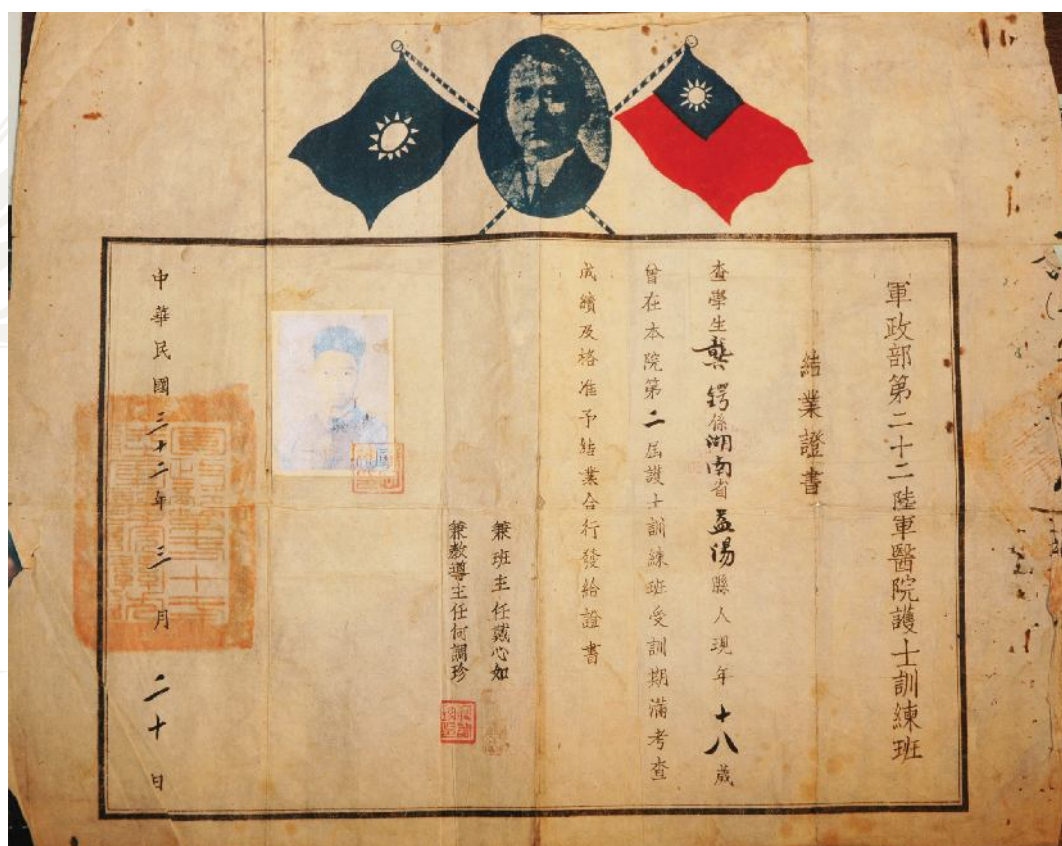 軍政部第二十二陸軍醫院護士訓練班
結業證書
查學生龔鍔係湖南省益陽縣人現年十八歲
曾在本院第二屆護士訓練班受訓期滿考查
成績及格准予結業合行發給證書
兼班主任戴心如
兼教導主任何調珍
中華民國三十二年三月二十日